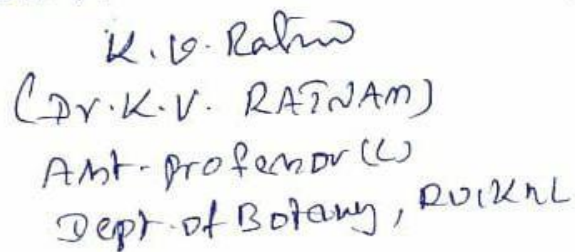 K.V. Ratna
(Dr. K.V. RATNAM)
Asst. professor (C)
Dept. of Botany, RU, KNL